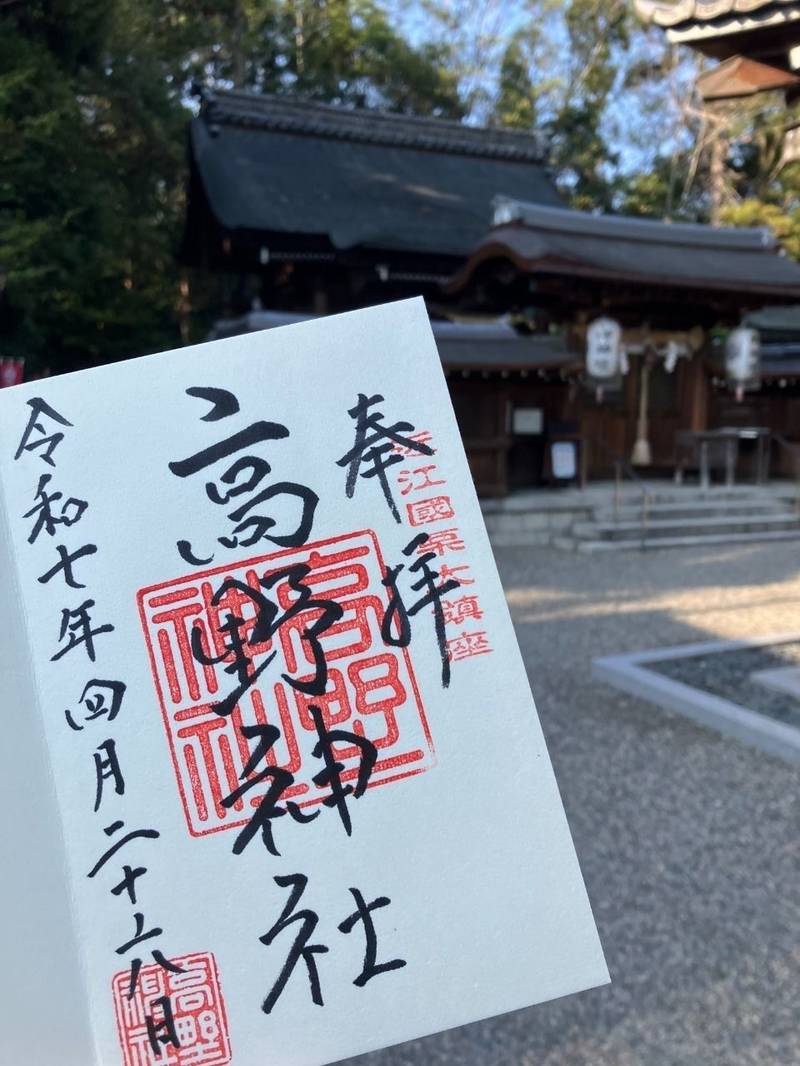 奉拝
近江國栗太鎮座
高野神社
高野
神社
令和七年四月二十六日
高野
神社